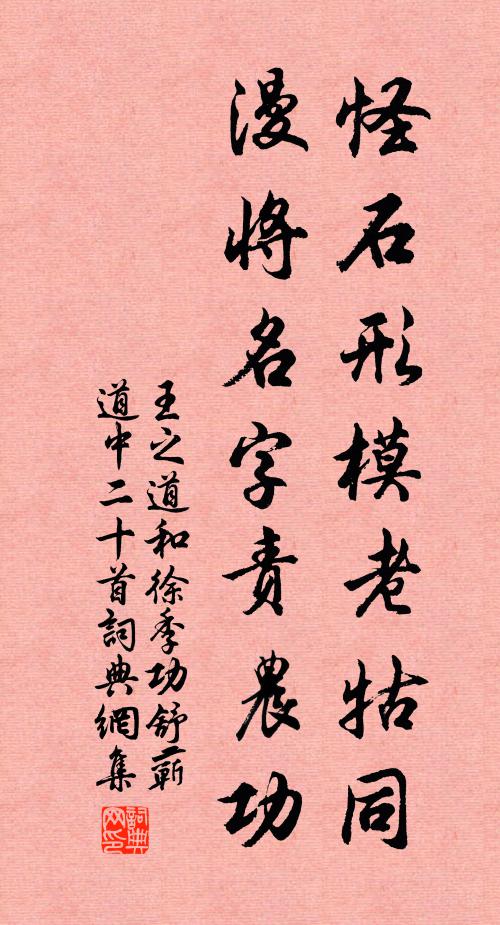 怪石形模老牯同
漫將名字責農功
王之道和徐季功舒蘄
道中二十首詞典網集
詞典网印